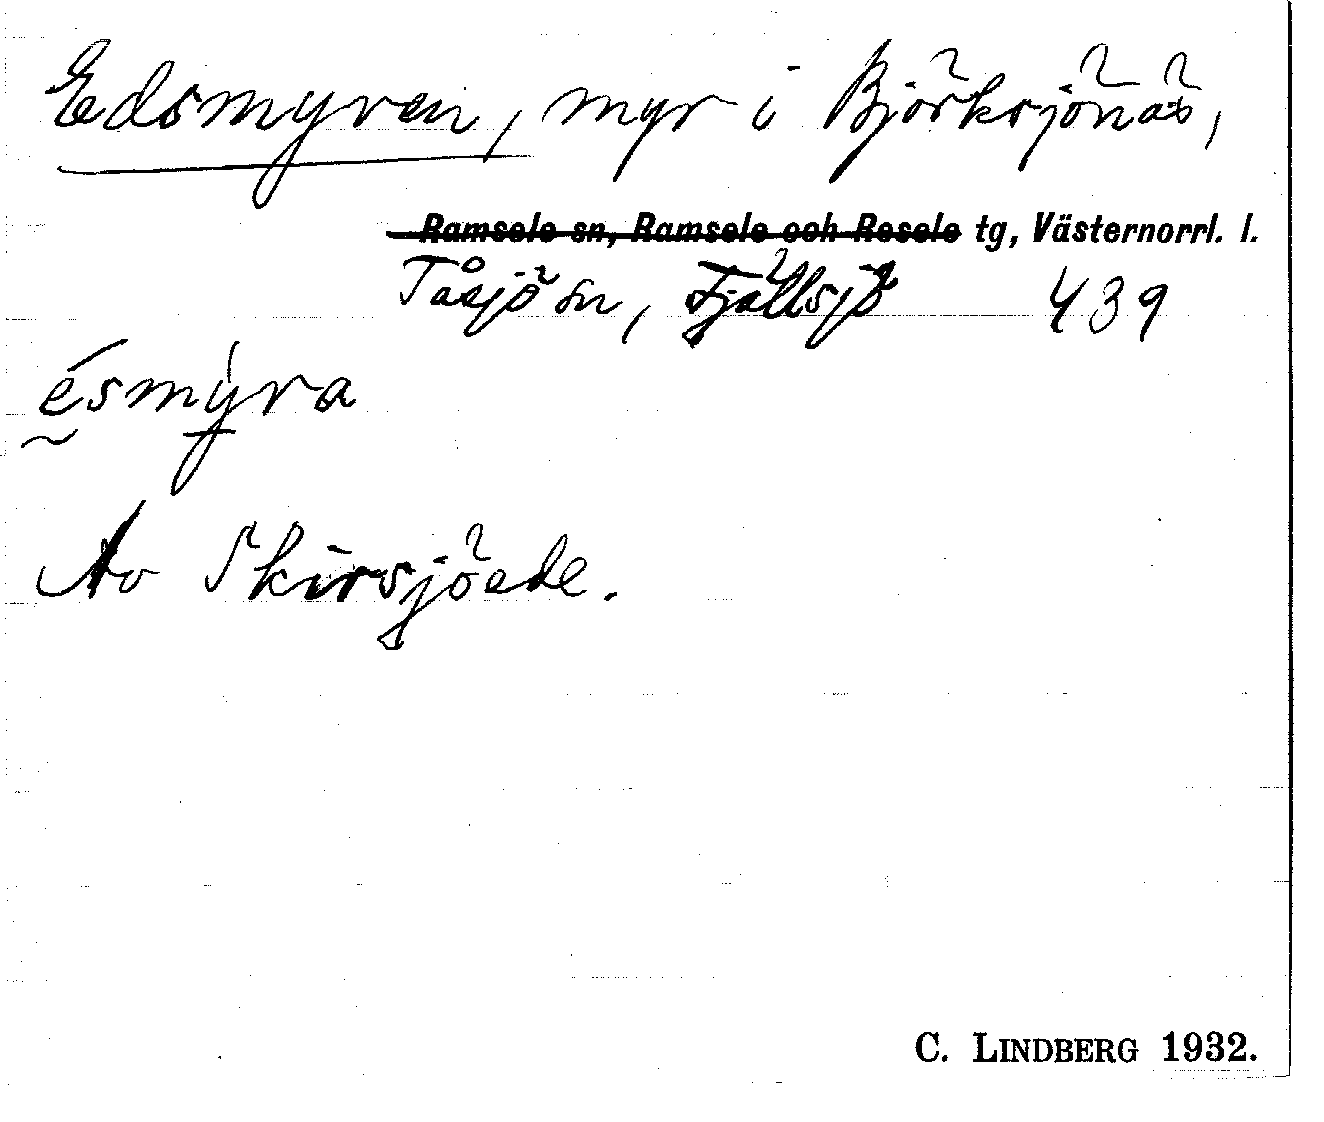 Edsmyren, myr i Björksjönäs,
Ramsele sn, Ramsele och Resele tg, Västernorrl. l.
Tåsjö sn, Fjällsjö 439
ésmýra
Av Skirsjöede.
C. LINDBERG 1932.